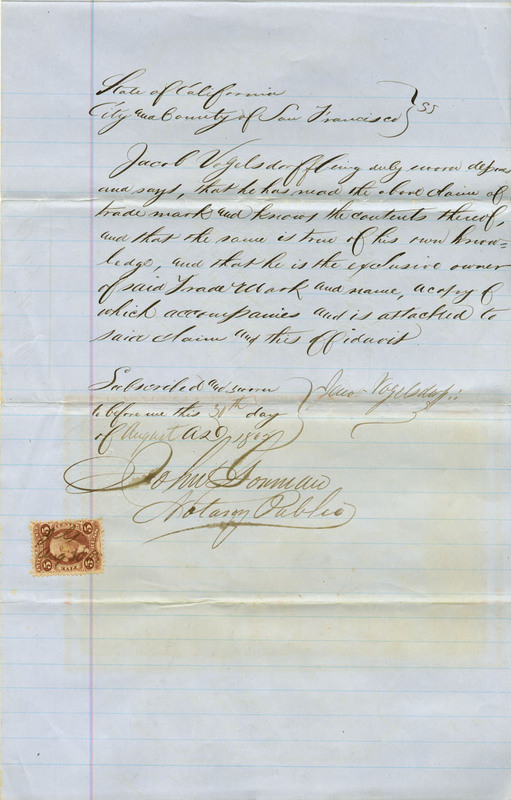 State of California
City and County of San Francisco } SS
Jacob Vogelsdorff being duly sworn deposes
and says, that he has read the above claim of
trade mark and knows the contents thereof,
and that the same is true of his own know-
ledge, and that he is the exclusive owner
of said Trade Mark and name, a copy of
which accompanies and is attached to
said claim and this affidavit
Subscribed and sworn
to before me this 30th day
of August A.D. 1867
Jacob Vogelsdorff
John Gorman
Notary Public
5 5
5 5